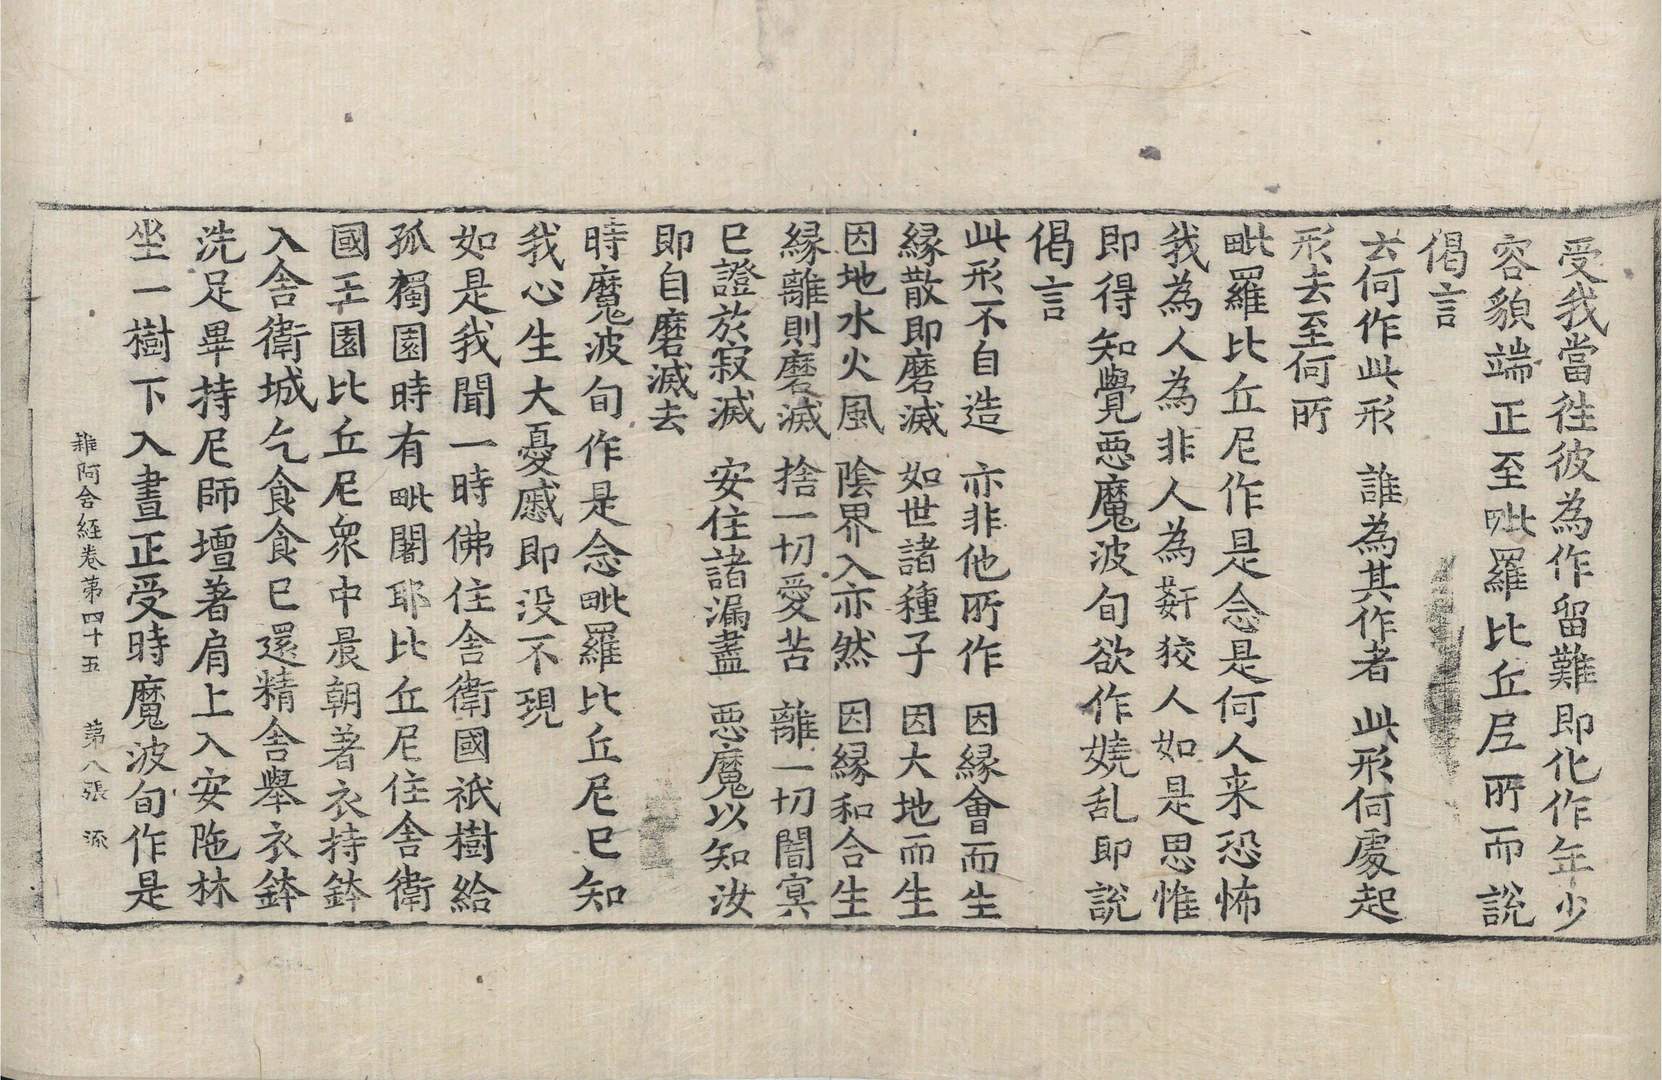 受我當往彼為作留難即化作年少
容貌端正至毗羅比丘尼所而說
偈言
云何作此形　誰為其作者　此形何處起
形去至何所
毗羅比丘尼作是念是何人来恐怖
我為人為非人為姧狡人如是思惟
即得知覺惡魔波旬欲作嬈乱即說
偈言
此形不自造　亦非他所作　因緣會而生
緣散即磨滅　如世諸種子　因大地而生
因地水火風　陰界入亦然　因緣和合生
緣離則磨滅　捨一切愛苦　離一切闇冥
已證於寂滅　安住諸漏盡　惡魔以知汝
即自磨滅去
時魔波旬作是念毗羅比丘尼已知
我心生大憂慼即没不現
如是我聞一時佛住舍衛國祇樹給
孤獨園時有毗闍耶比丘尼住舍衛
國王園比丘尼衆中晨朝著衣持鉢
入舍衛城乞食食已還精舍舉衣鉢
洗足畢持尼師壇著肩上入安陁林
坐一樹下入晝正受時魔波旬作是
雜阿含經卷第四十五　第八張　流